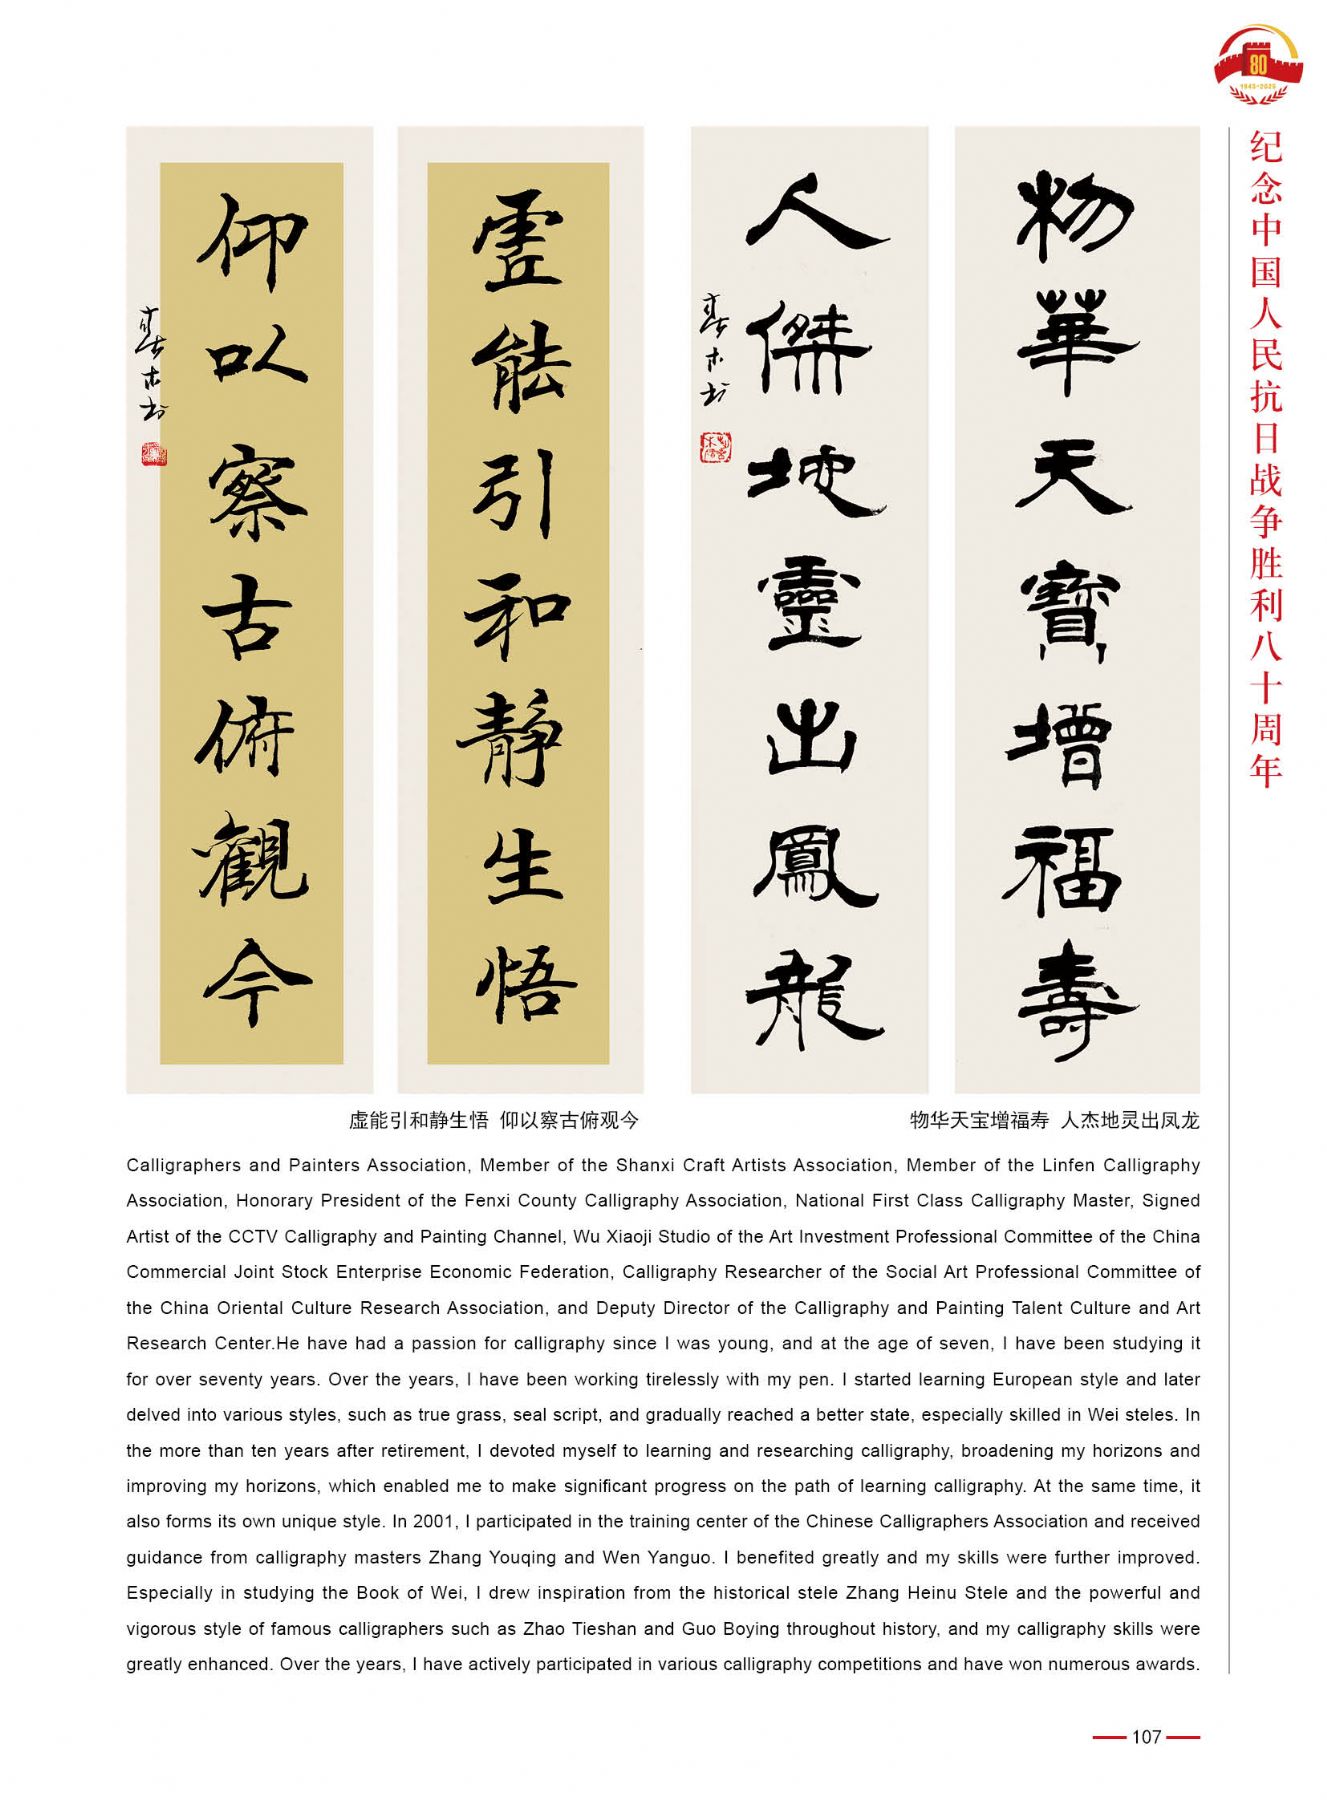 80
1945-2025
纪念中国人民抗日战争胜利八十周年
物華天寶增福壽
人傑地靈出鳳龍
虚能引和静生悟
仰以察古俯觀今
虚能引和静生悟 仰以察古俯观今
物华天宝增福寿 人杰地灵出凤龙
Calligraphers and Painters Association, Member of the Shanxi Craft Artists Association, Member of the Linfen Calligraphy
Association, Honorary President of the Fenxi County Calligraphy Association, National First Class Calligraphy Master, Signed
Artist of the CCTV Calligraphy and Painting Channel, Wu Xiaoji Studio of the Art Investment Professional Committee of the China
Commercial Joint Stock Enterprise Economic Federation, Calligraphy Researcher of the Social Art Professional Committee of
the China Oriental Culture Research Association, and Deputy Director of the Calligraphy and Painting Talent Culture and Art
Research Center.He have had a passion for calligraphy since I was young, and at the age of seven, I have been studying it
for over seventy years. Over the years, I have been working tirelessly with my pen. I started learning European style and later
delved into various styles, such as true grass, seal script, and gradually reached a better state, especially skilled in Wei steles. In
the more than ten years after retirement, I devoted myself to learning and researching calligraphy, broadening my horizons and
improving my horizons, which enabled me to make significant progress on the path of learning calligraphy. At the same time, it
also forms its own unique style. In 2001, I participated in the training center of the Chinese Calligraphers Association and received
guidance from calligraphy masters Zhang Youqing and Wen Yanguo. I benefited greatly and my skills were further improved.
Especially in studying the Book of Wei, I drew inspiration from the historical stele Zhang Heinu Stele and the powerful and
vigorous style of famous calligraphers such as Zhao Tieshan and Guo Boying throughout history, and my calligraphy skills were
greatly enhanced. Over the years, I have actively participated in various calligraphy competitions and have won numerous awards.
107